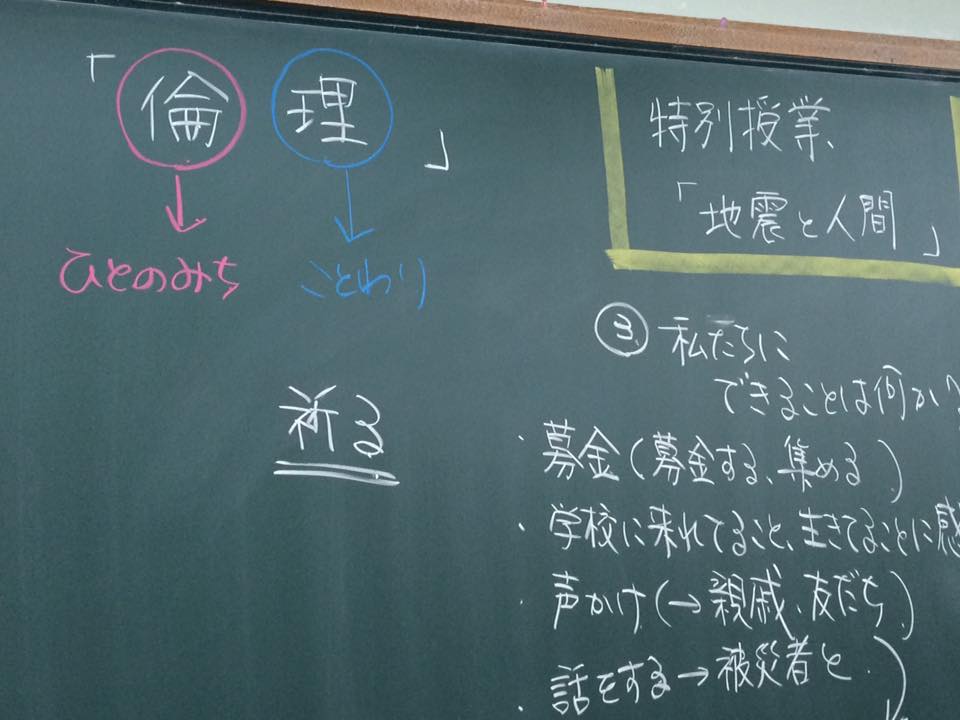 「倫理」
ひとのみち ことわり
祈る
特別授業
「地震と人間」
③ 私たちに
できることは何か?
・募金(募金する、集める)
・学校に来れてること、生きてることに感
・声かけ(→親戚、友だち)
・話をする→被災者と